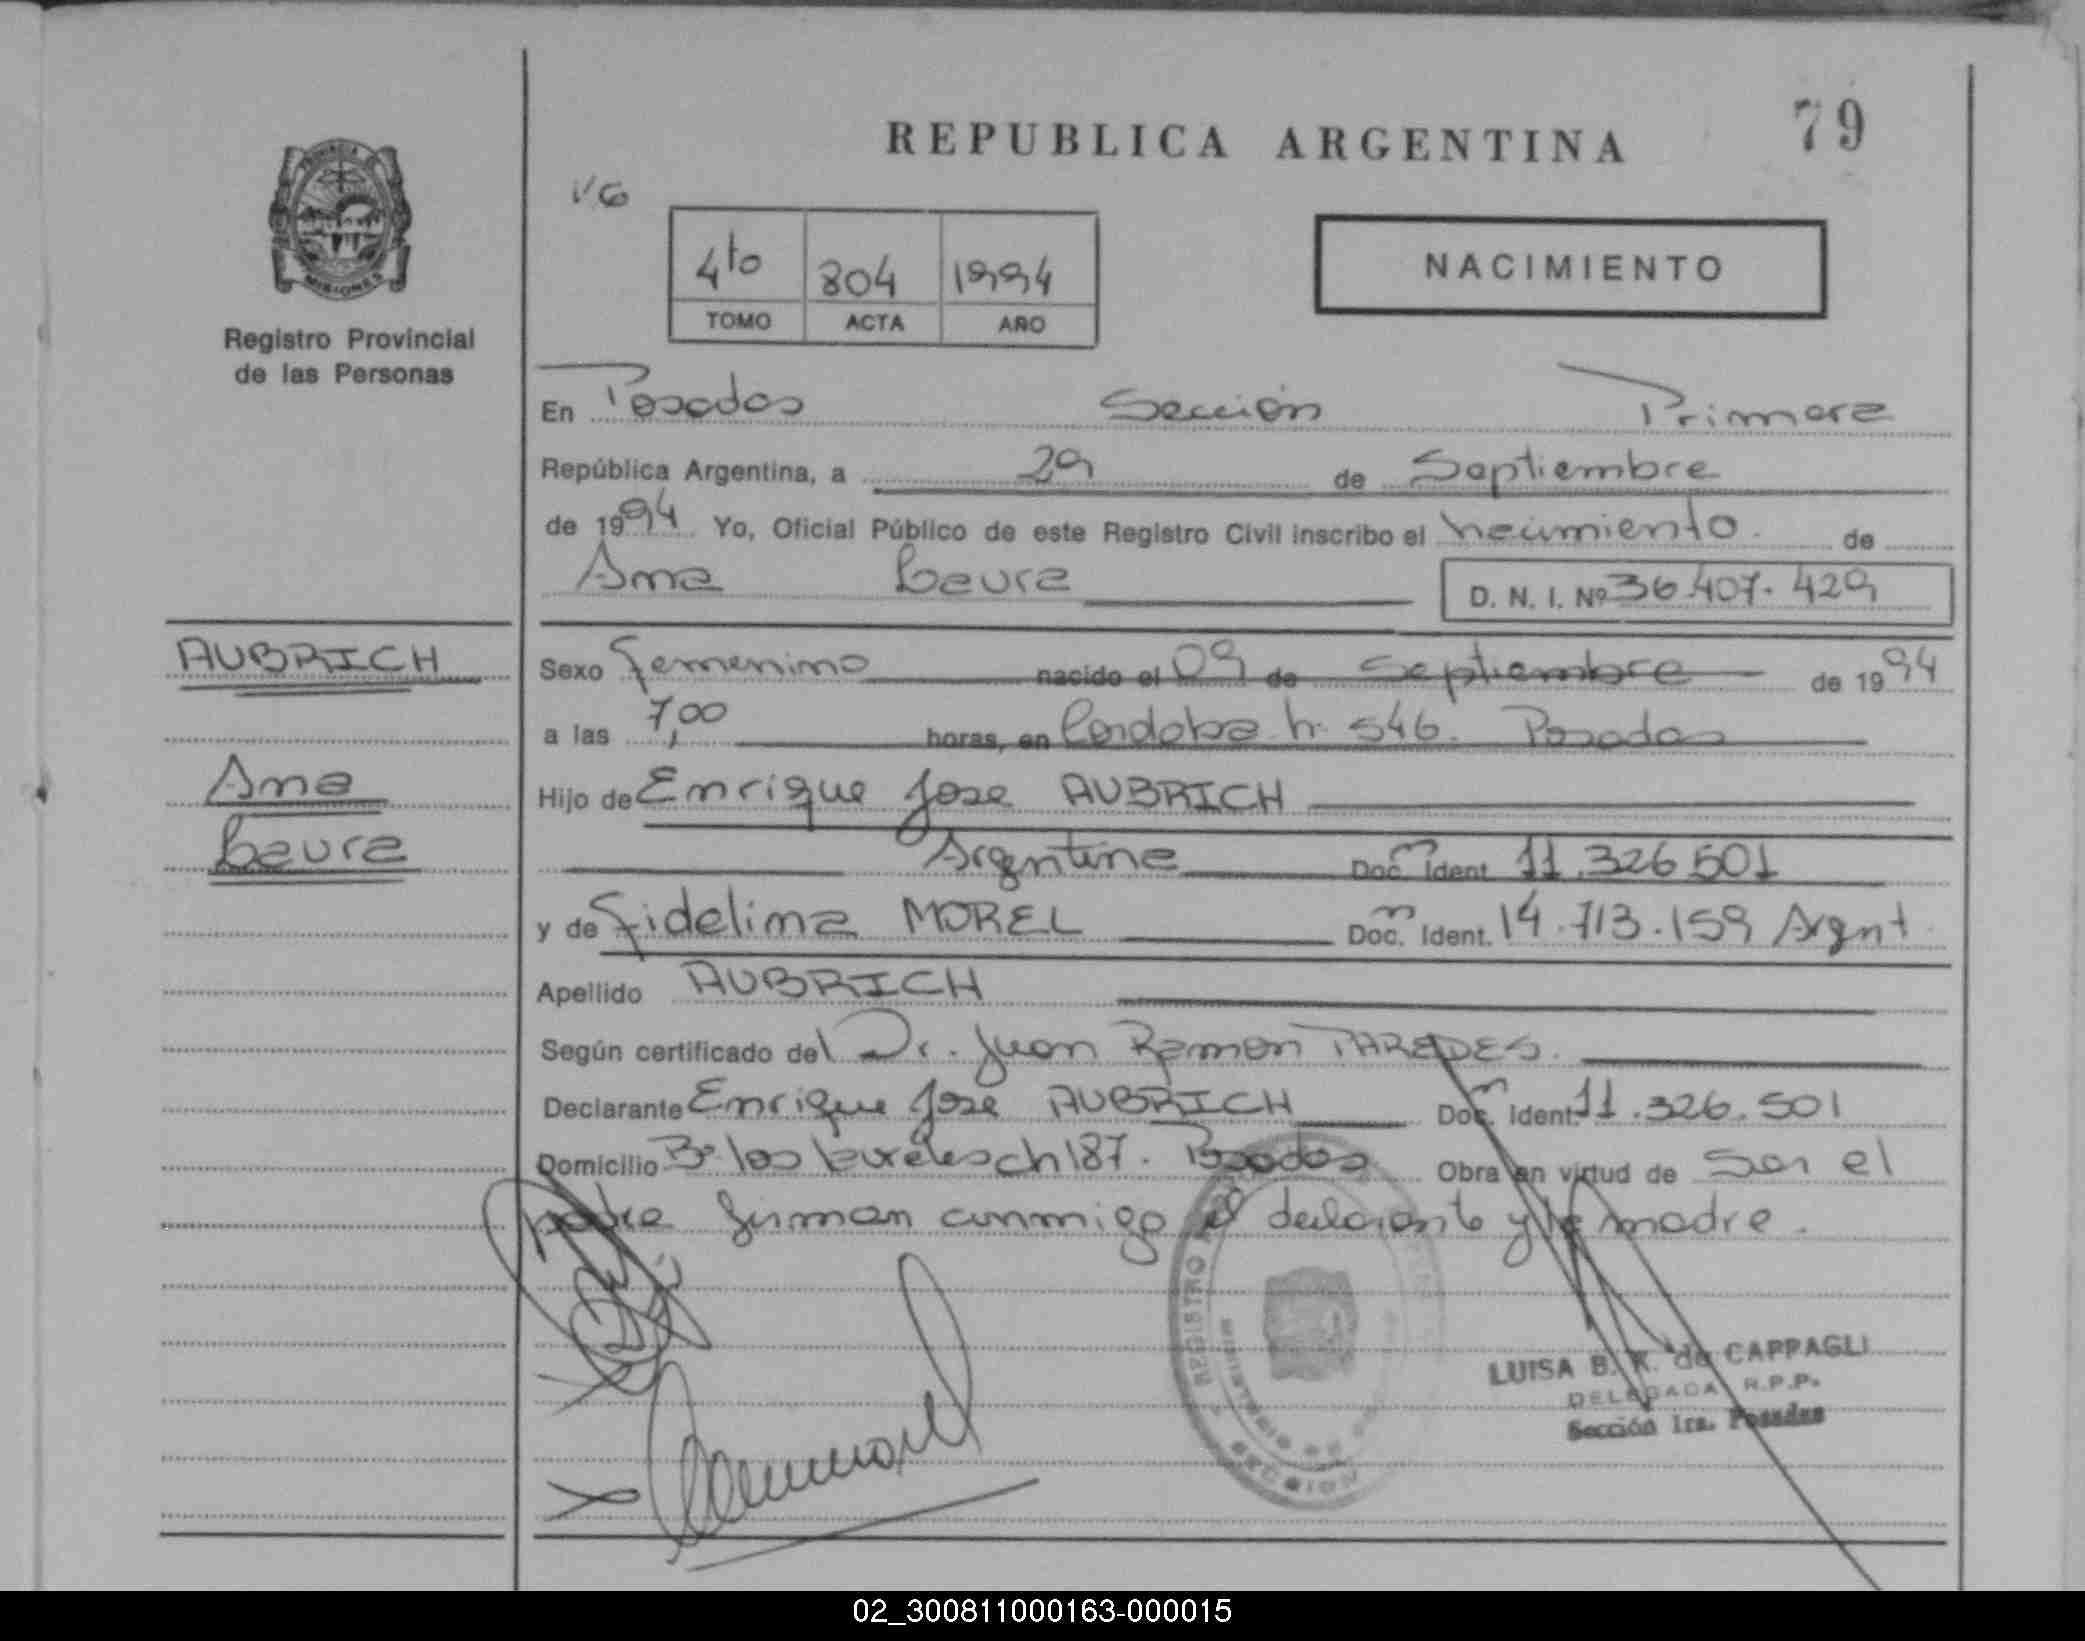 REPUBLICA ARGENTINA
79
PROVINCIA DE
MISIONES
Registro Provincial
de las Personas
VG
4to 804 1994
TOMO ACTA AÑO
NACIMIENTO
En Posadas Sección Primera
República Argentina, a 29 de Septiembre
de 1994 Yo, Oficial Público de este Registro Civil inscribo el nacimiento. de
Ana Laura D. N. I. Nº 36.407.429
AUBRICH
Ana
Laura
Sexo femenino nacido el 09 de Septiembre de 1994
a las 7,00 horas, en Cordoba n. 546. Posadas
Hijo de Enrique Jose AUBRICH
Argentina Doc. Ident. 11.326.501
y de fidelina MOREL Doc. Ident. 14.713.159 Argnt
Apellido AUBRICH
Según certificado del Dr. Juan Ramon PAREDES.
Declarante Enrique Jose AUBRICH Doc. Ident. 11.326.501
Domicilio Bº los laureles ch 187. Posadas Obra en virtud de Ser el
padre firman conmigo el declarante y la madre.
REGISTRO
MINISTERIO DE
SECCION
LUISA B. K. de CAPPAGLI
DELEGADA R.P.P.
Sección 1ra. Posadas
02_300811000163-000015